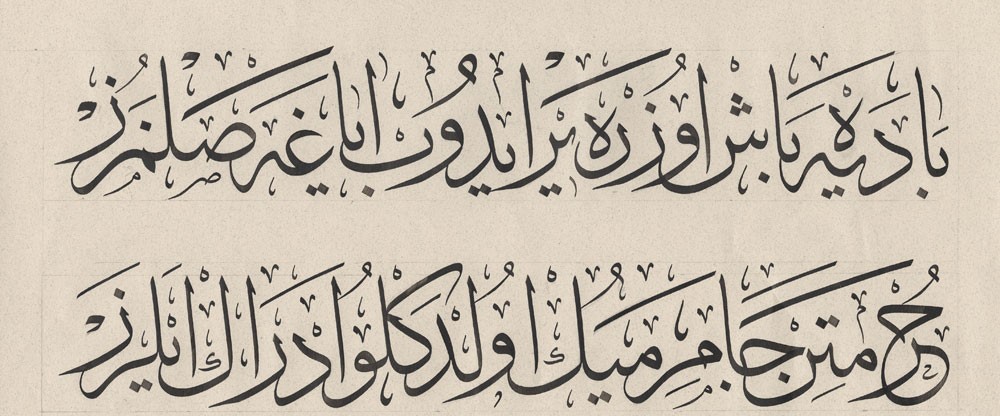 باده یه باش اوزره یر ایدوب ایاغه صلمزز
حرمتن جام میك اولدكلو ادراك ایلرز